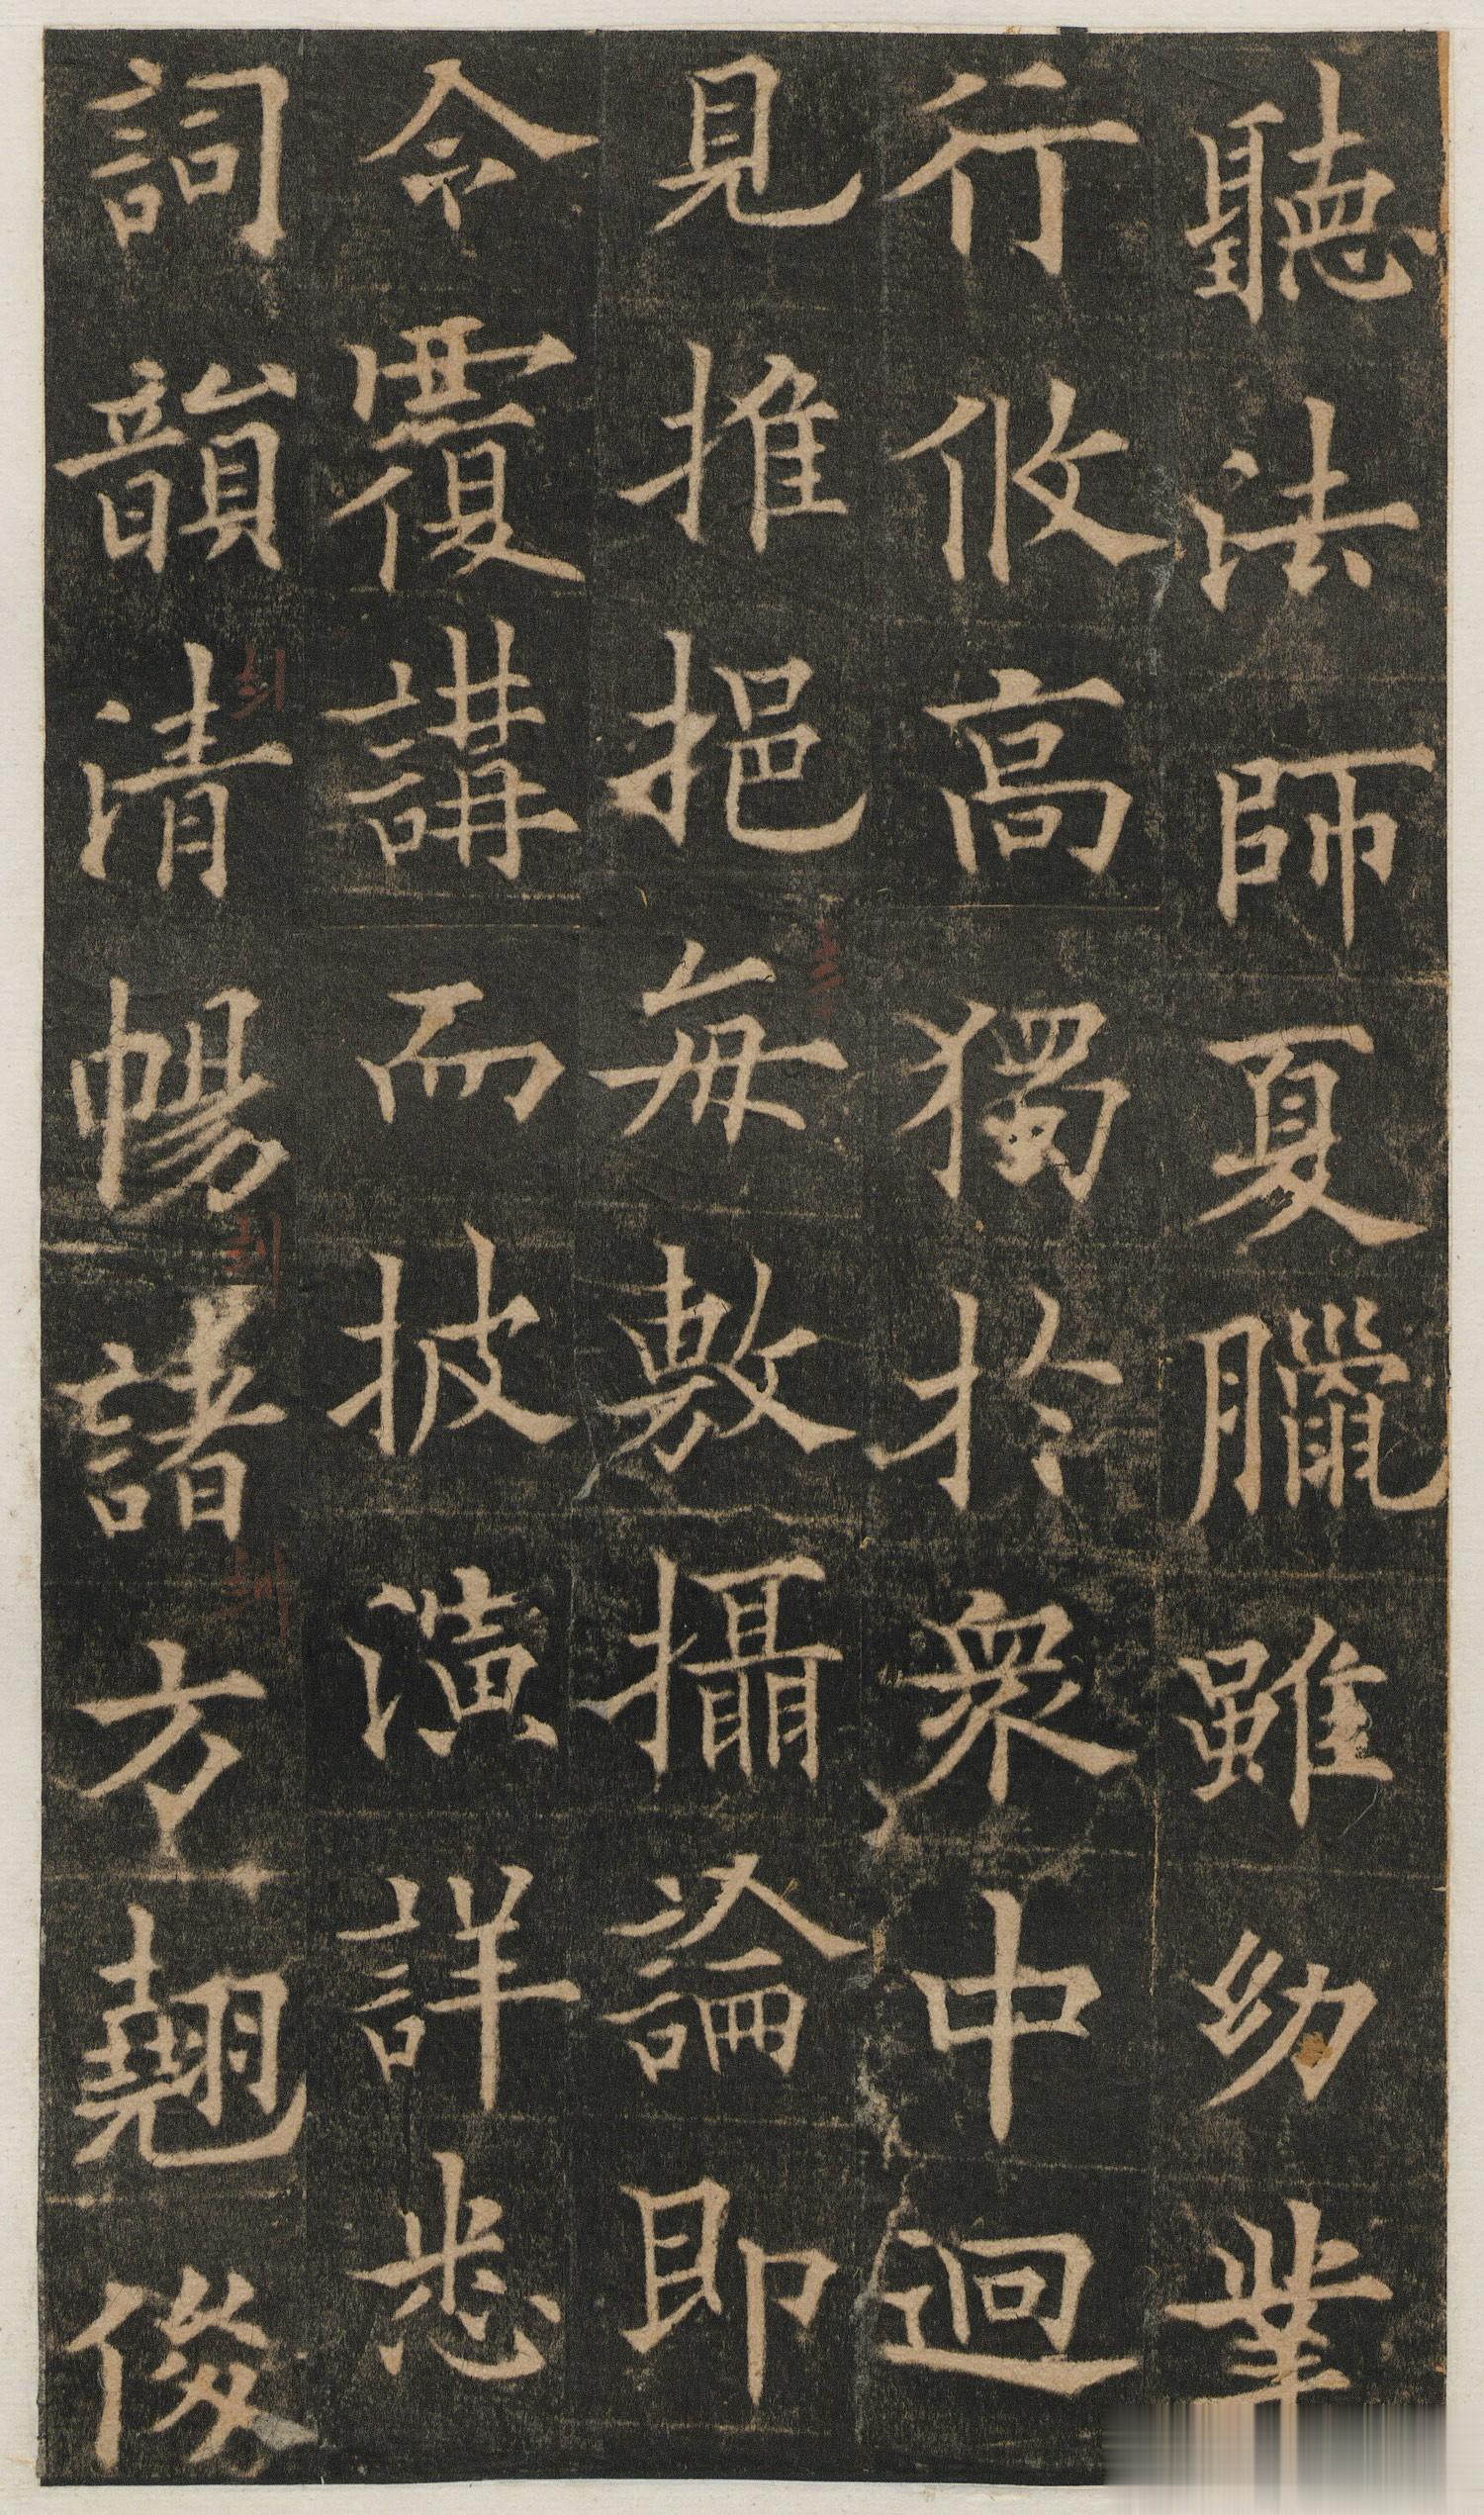 聽法師夏臘雖幼業
行攸高獨於衆中迥
見推挹每敷攝論即
令覆講而披演詳悉
詞韻清暢諸方翹俊